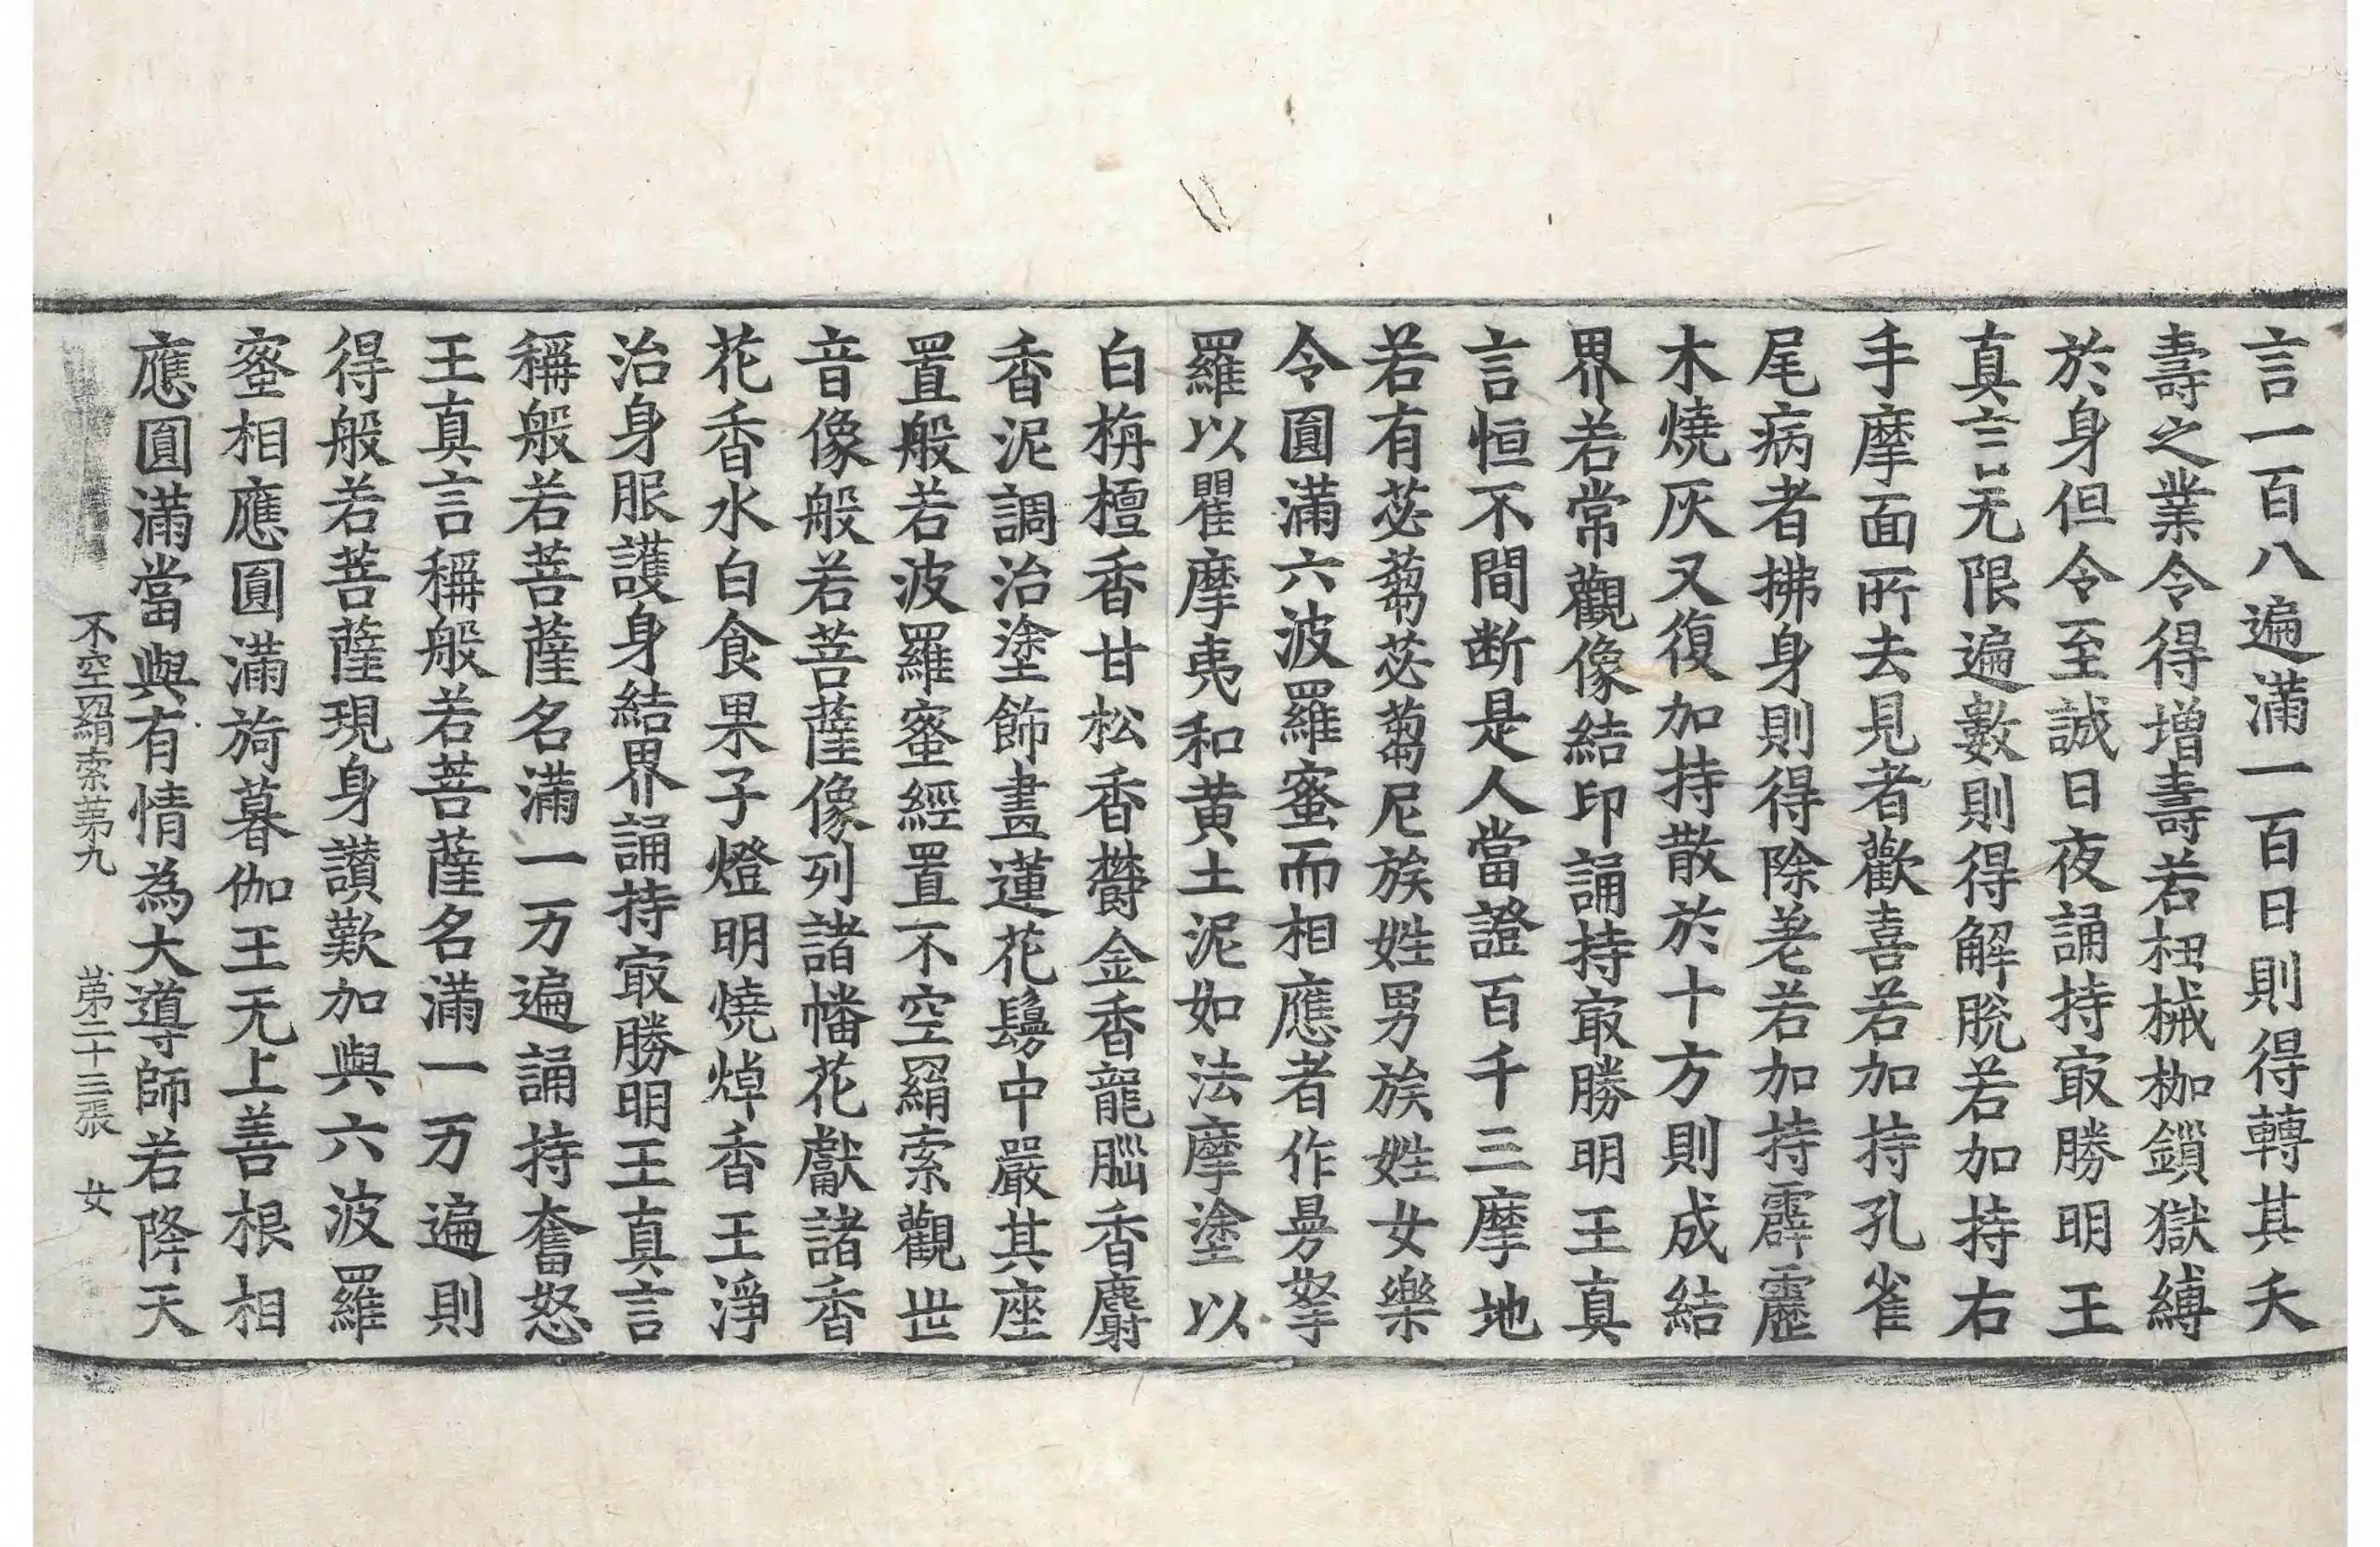 言一百八遍滿一百日則得轉其夭
壽之業令得增壽若杻械枷鎖獄縛
於身但令至誠日夜誦持㝡勝明王
真言无限遍數則得解脫若加持右
手摩面所去見者歡喜若加持孔雀
尾病者拂身則得除差若加持霹靂
木燒灰又復加持散於十方則成結
界若常觀像結印誦持㝡勝明王真
言恒不間断是人當證百千三摩地
若有苾蒭苾蒭尼族姓男族姓女樂
令圓滿六波羅蜜而相應者作曼拏
羅以瞿摩夷和黃土泥如法摩塗以
白栴檀香甘松香欝金香龍腦香麝
香泥調治塗飾畫蓮花鬘中嚴其座
置般若波羅蜜經置不空羂索觀世
音像般若菩薩像列諸幡花獻諸香
花香水白食果子燈明燒焯香王淨
治身服護身結界誦持㝡勝明王真言
稱般若菩薩名滿一万遍誦持奮怒
王真言稱般若菩薩名滿一万遍則
得般若菩薩現身讃歎加與六波羅
蜜相應圓滿旖暮伽王无上善根相
應圓滿當與有情為大導師若降天
不空羂索苐九 苐二十三張 女